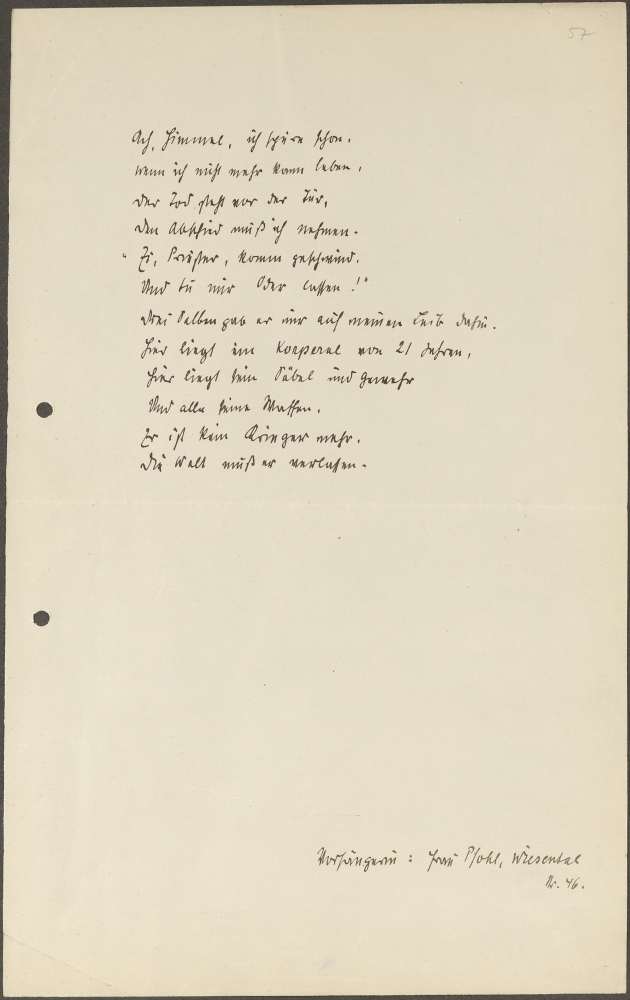 57
Ach, Himmel, ich spüre schon.
wenn ich nicht mehr kann leben,
der Tod steht vor der Tür,
den Abschied muß ich nehmen.
"Ei, Priester, komm geschwind.
Und tu mir Oder lassen!"
Drei Salben gab er mir auf meinen Leib dahin.
Hier liegt ein Korperal von 21 Jahren,
Hier liegt sein Säbel und Gewehr
Und alle seine Waffen.
Er ist kein Krieger mehr.
Die Welt muß er verlassen.
Vorsängerin: Frau Pfohl, Wiesental
Nr. 46.